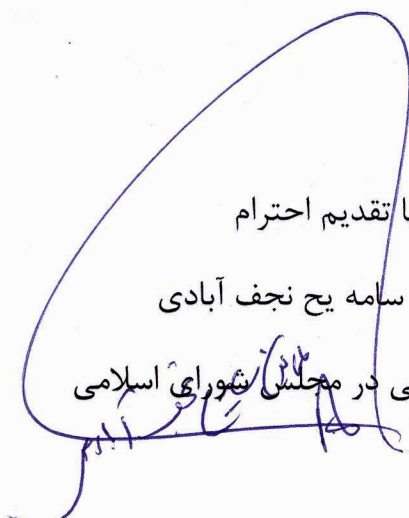 ا تقدیم احترام
سامه یح نجف آبادی
ی در مجلس شورای اسلامی